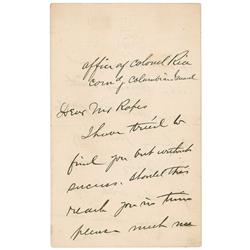 Office of Colonel Rice
Comdg Columbian Guard
Dear Mr Ropes
I have tried to
find you but without
success. Should this
reach you in time
please much me